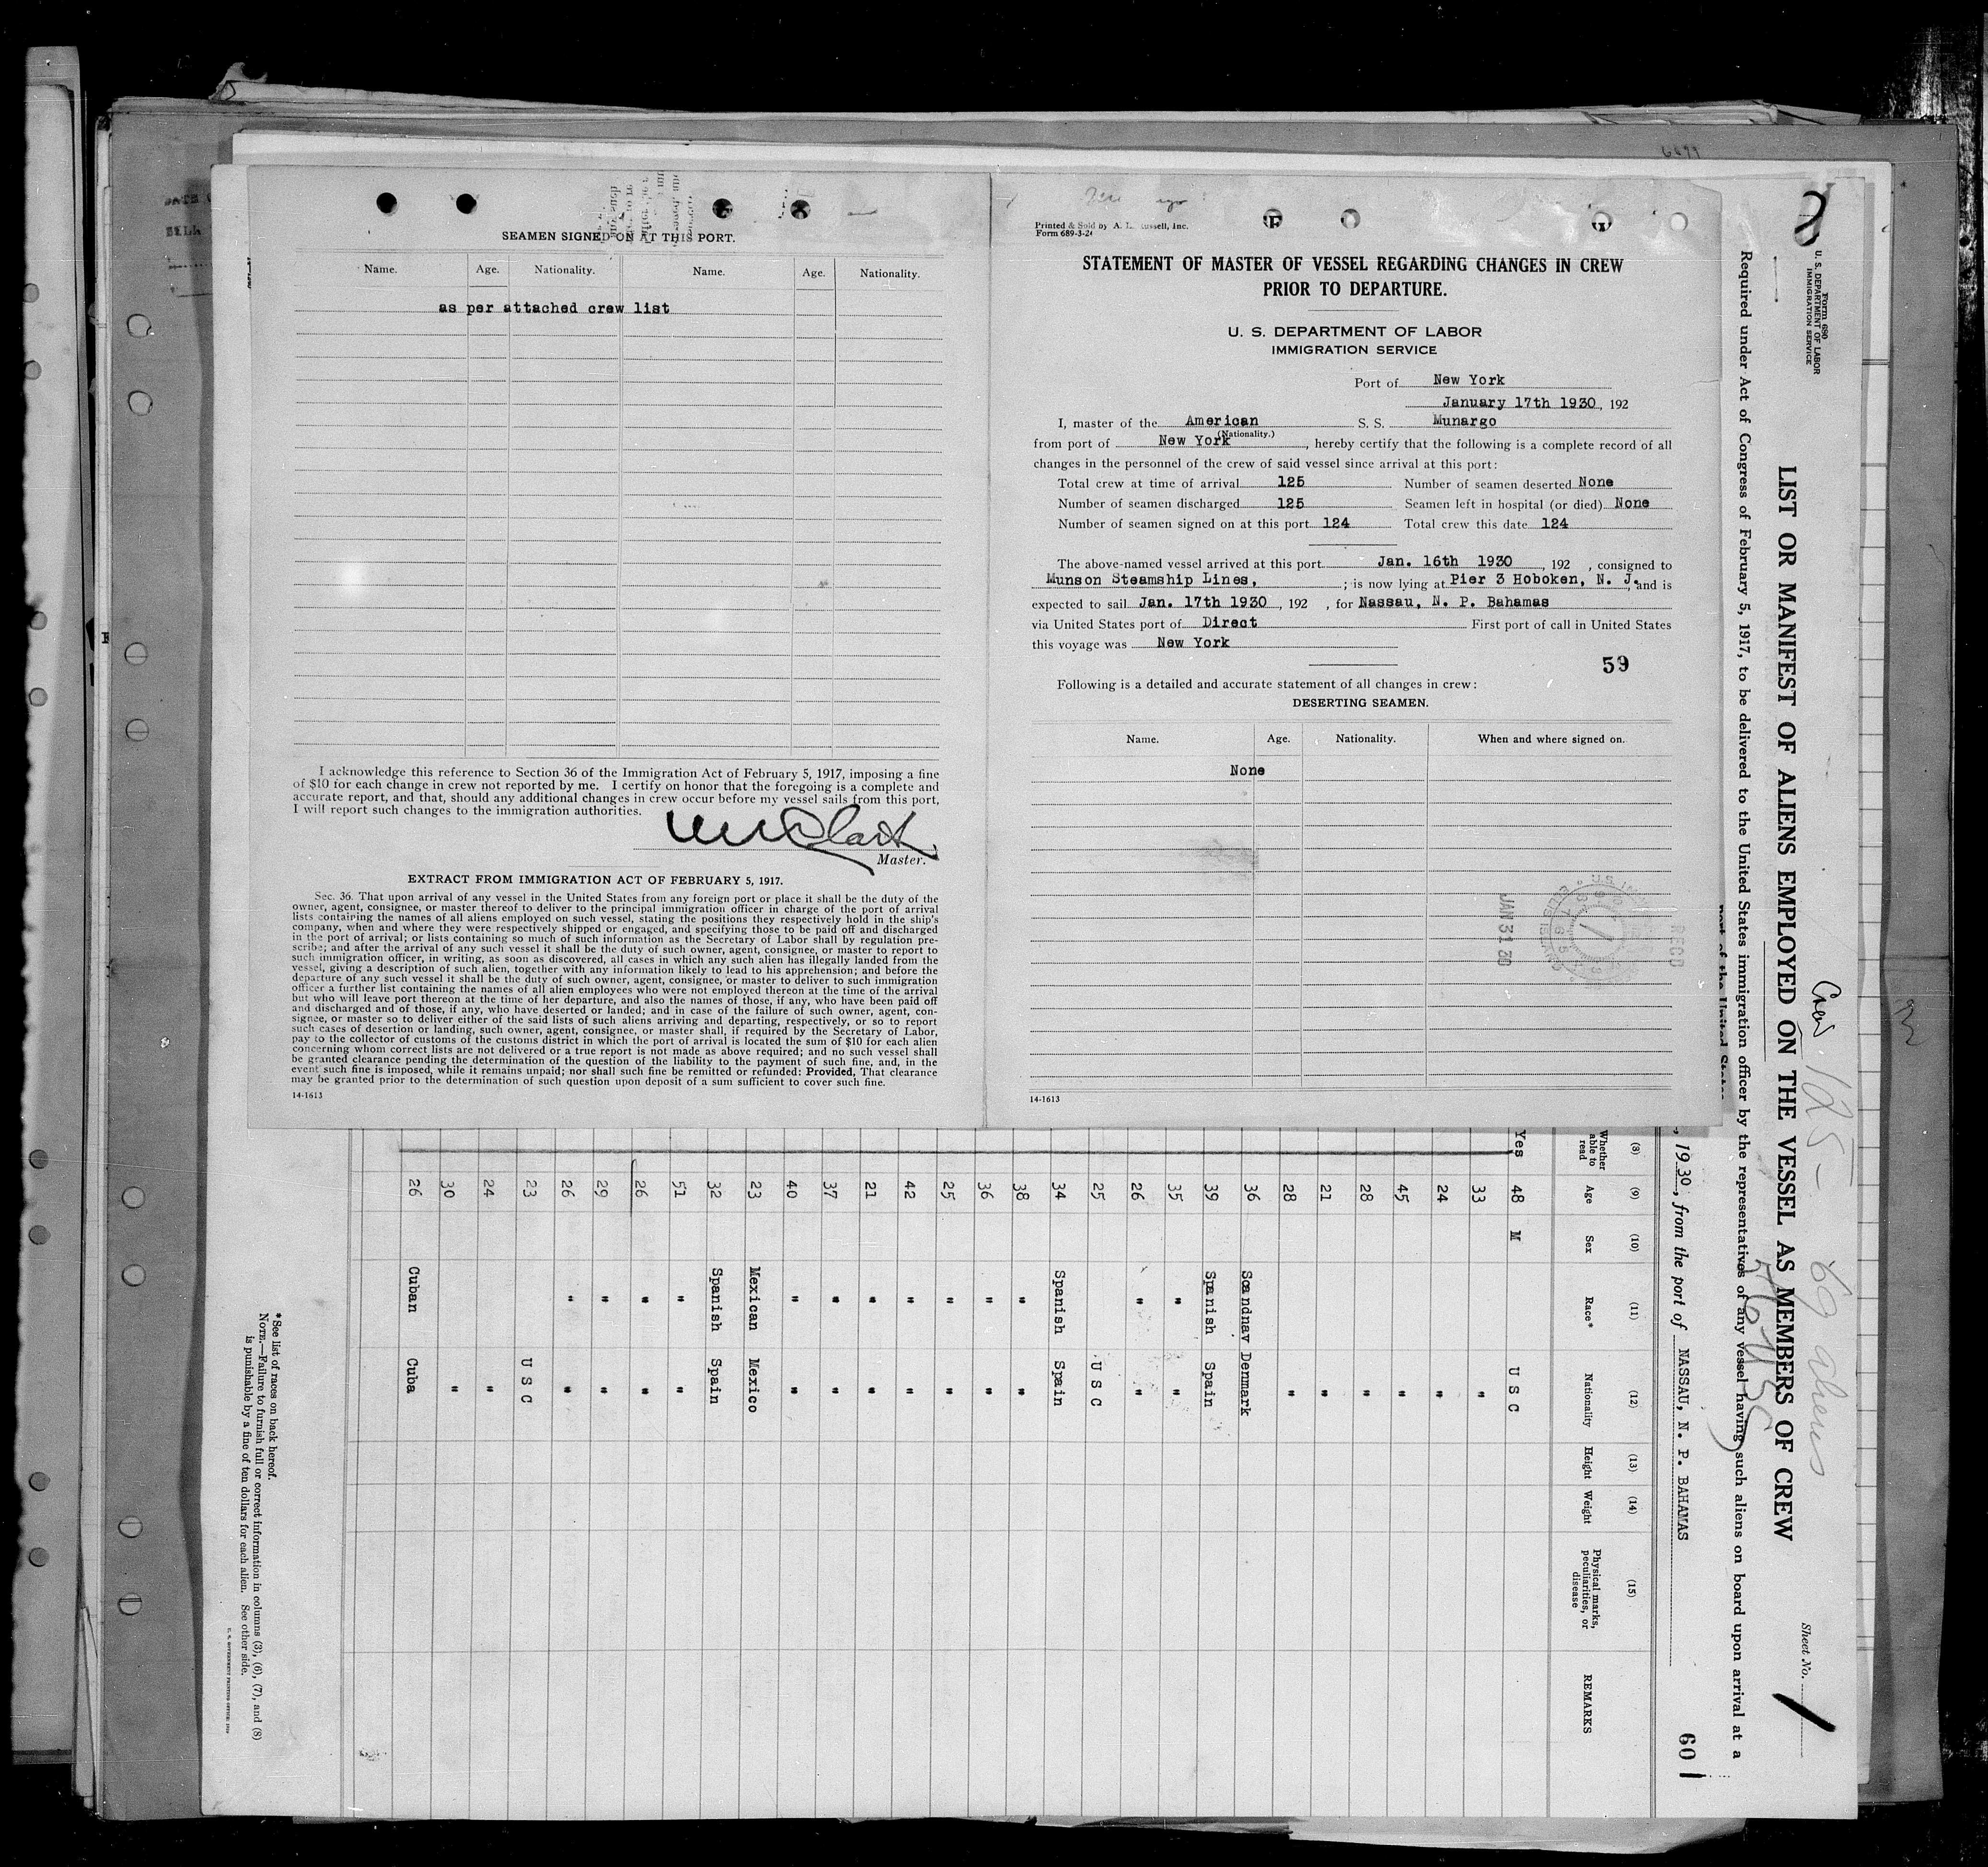 SEAMEN SIGNED ON AT THIS PORT.
Name. Age. Nationality. Name. Age. Nationality.
as per attached crew list
I acknowledge this reference to Section 36 of the Immigration Act of February 5, 1917, imposing a fine
of $10 for each change in crew not reported by me. I certify on honor that the foregoing is a complete and
accurate report, and that, should any additional changes in crew occur before my vessel sails from this port,
I will report such changes to the immigration authorities.
Master.
EXTRACT FROM IMMIGRATION ACT OF FEBRUARY 5, 1917.
Sec. 36. That upon arrival of any vessel in the United States from any foreign port or place it shall be the duty of the
owner, agent, consignee, or master thereof to deliver to the principal immigration officer in charge of the port of arrival
lists containing the names of all aliens employed on such vessel, stating the positions they respectively hold in the ship's
company, when and where they were respectively shipped or engaged, and specifying those to be paid off and discharged
in the port of arrival; or lists containing so much of such information as the Secretary of Labor shall by regulation pre-
scribe; and after the arrival of any such vessel it shall be the duty of such owner, agent, consignee, or master to report to
such immigration officer, in writing, as soon as discovered, all cases in which any such alien has illegally landed from the
vessel, giving a description of such alien, together with any information likely to lead to his apprehension; and before the
departure of any such vessel it shall be the duty of such owner, agent, consignee, or master to deliver to such immigration
officer a further list containing the names of all alien employees who were not employed thereon at the time of the arrival
but who will leave port thereon at the time of her departure, and also the names of those, if any, who have been paid off
and discharged and of those, if any, who have deserted or landed; and in case of the failure of such owner, agent, con-
signee, or master so to deliver either of the said lists of such aliens arriving and departing, respectively, or so to report
such cases of desertion or landing, such owner, agent, consignee, or master shall, if required by the Secretary of Labor,
pay to the collector of customs of the customs district in which the port of arrival is located the sum of $10 for each alien
concerning whom correct lists are not delivered or a true report is not made as above required; and no such vessel shall
be granted clearance pending the determination of the question of the liability to the payment of such fine, and, in the
event such fine is imposed, while it remains unpaid; nor shall such fine be remitted or refunded: Provided, That clearance
may be granted prior to the determination of such question upon deposit of a sum sufficient to cover such fine.
14-1613
Printed & Sold by A. L. Russell, Inc.
Form 689-3-2
STATEMENT OF MASTER OF VESSEL REGARDING CHANGES IN CREW
PRIOR TO DEPARTURE.
U. S. DEPARTMENT OF LABOR
IMMIGRATION SERVICE
Port of New York
January 17th 1930, 192
I, master of the American S. S. Munargo
(Nationality.)
from port of New York, hereby certify that the following is a complete record of all
changes in the personnel of the crew of said vessel since arrival at this port:
Total crew at time of arrival 125 Number of seamen deserted None
Number of seamen discharged 125 Seamen left in hospital (or died) None
Number of seamen signed on at this port 124 Total crew this date 124
The above-named vessel arrived at this port Jan. 16th 1930, 192 , consigned to
Munson Steamship Lines, ; is now lying at Pier 3 Hoboken, N. J., and is
expected to sail Jan. 17th 1930, 192 , for Nassau, N. P. Bahamas
via United States port of Direct First port of call in United States
this voyage was New York
59
Following is a detailed and accurate statement of all changes in crew:
DESERTING SEAMEN.
Name. Age. Nationality. When and where signed on.
None
JAN 31 30
REC'D
14-1613
Form 680
U. S. DEPARTMENT OF LABOR
IMMIGRATION SERVICE
Crew 125 - 69 aliens
Sheet No. 1
LIST OR MANIFEST OF ALIENS EMPLOYED ON THE VESSEL AS MEMBERS OF CREW
Required under Act of Congress of February 5, 1917, to be delivered to the United States immigration officer by the representatives of any vessel having such aliens on board upon arrival at a
port of the United States
, 1930, from the port of NASSAU, N. P. BAHAMAS
60
(8) (9) (10) (11) (12) (13) (14) (15)
Whether able to read Age Sex Race* Nationality Height Weight Physical marks, peculiarities, or disease REMARKS
Yes 48 M U S C
33 "
24 "
45 "
28 "
21 "
28 "
36 Scandnav Denmark
39 Spanish Spain
35 " "
26 " "
25 U S C
34 Spanish Spain
38 " "
36 " "
25 " "
42 " "
21 " "
37 " "
40 " "
23 Mexican Mexico
32 Spanish Spain
51 " "
26 " "
29 " "
26 " "
23 U S C
24 "
30 "
26 Cuban Cuba
*See list of races on back hereof.
NOTE.—Failure to furnish full or correct information in columns (3), (6), (7), and (8)
is punishable by a fine of ten dollars for each alien. See other side.